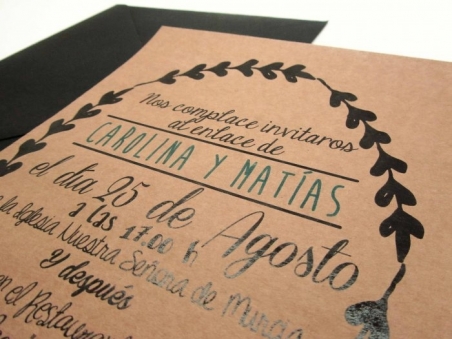 Nos complace invitaros
al enlace de
CAROLINA Y MATÍAS
el día 25 de Agosto
a las 17.00 h
la Iglesia Nuestra Señora de Murcia
y después
en el Restaurant